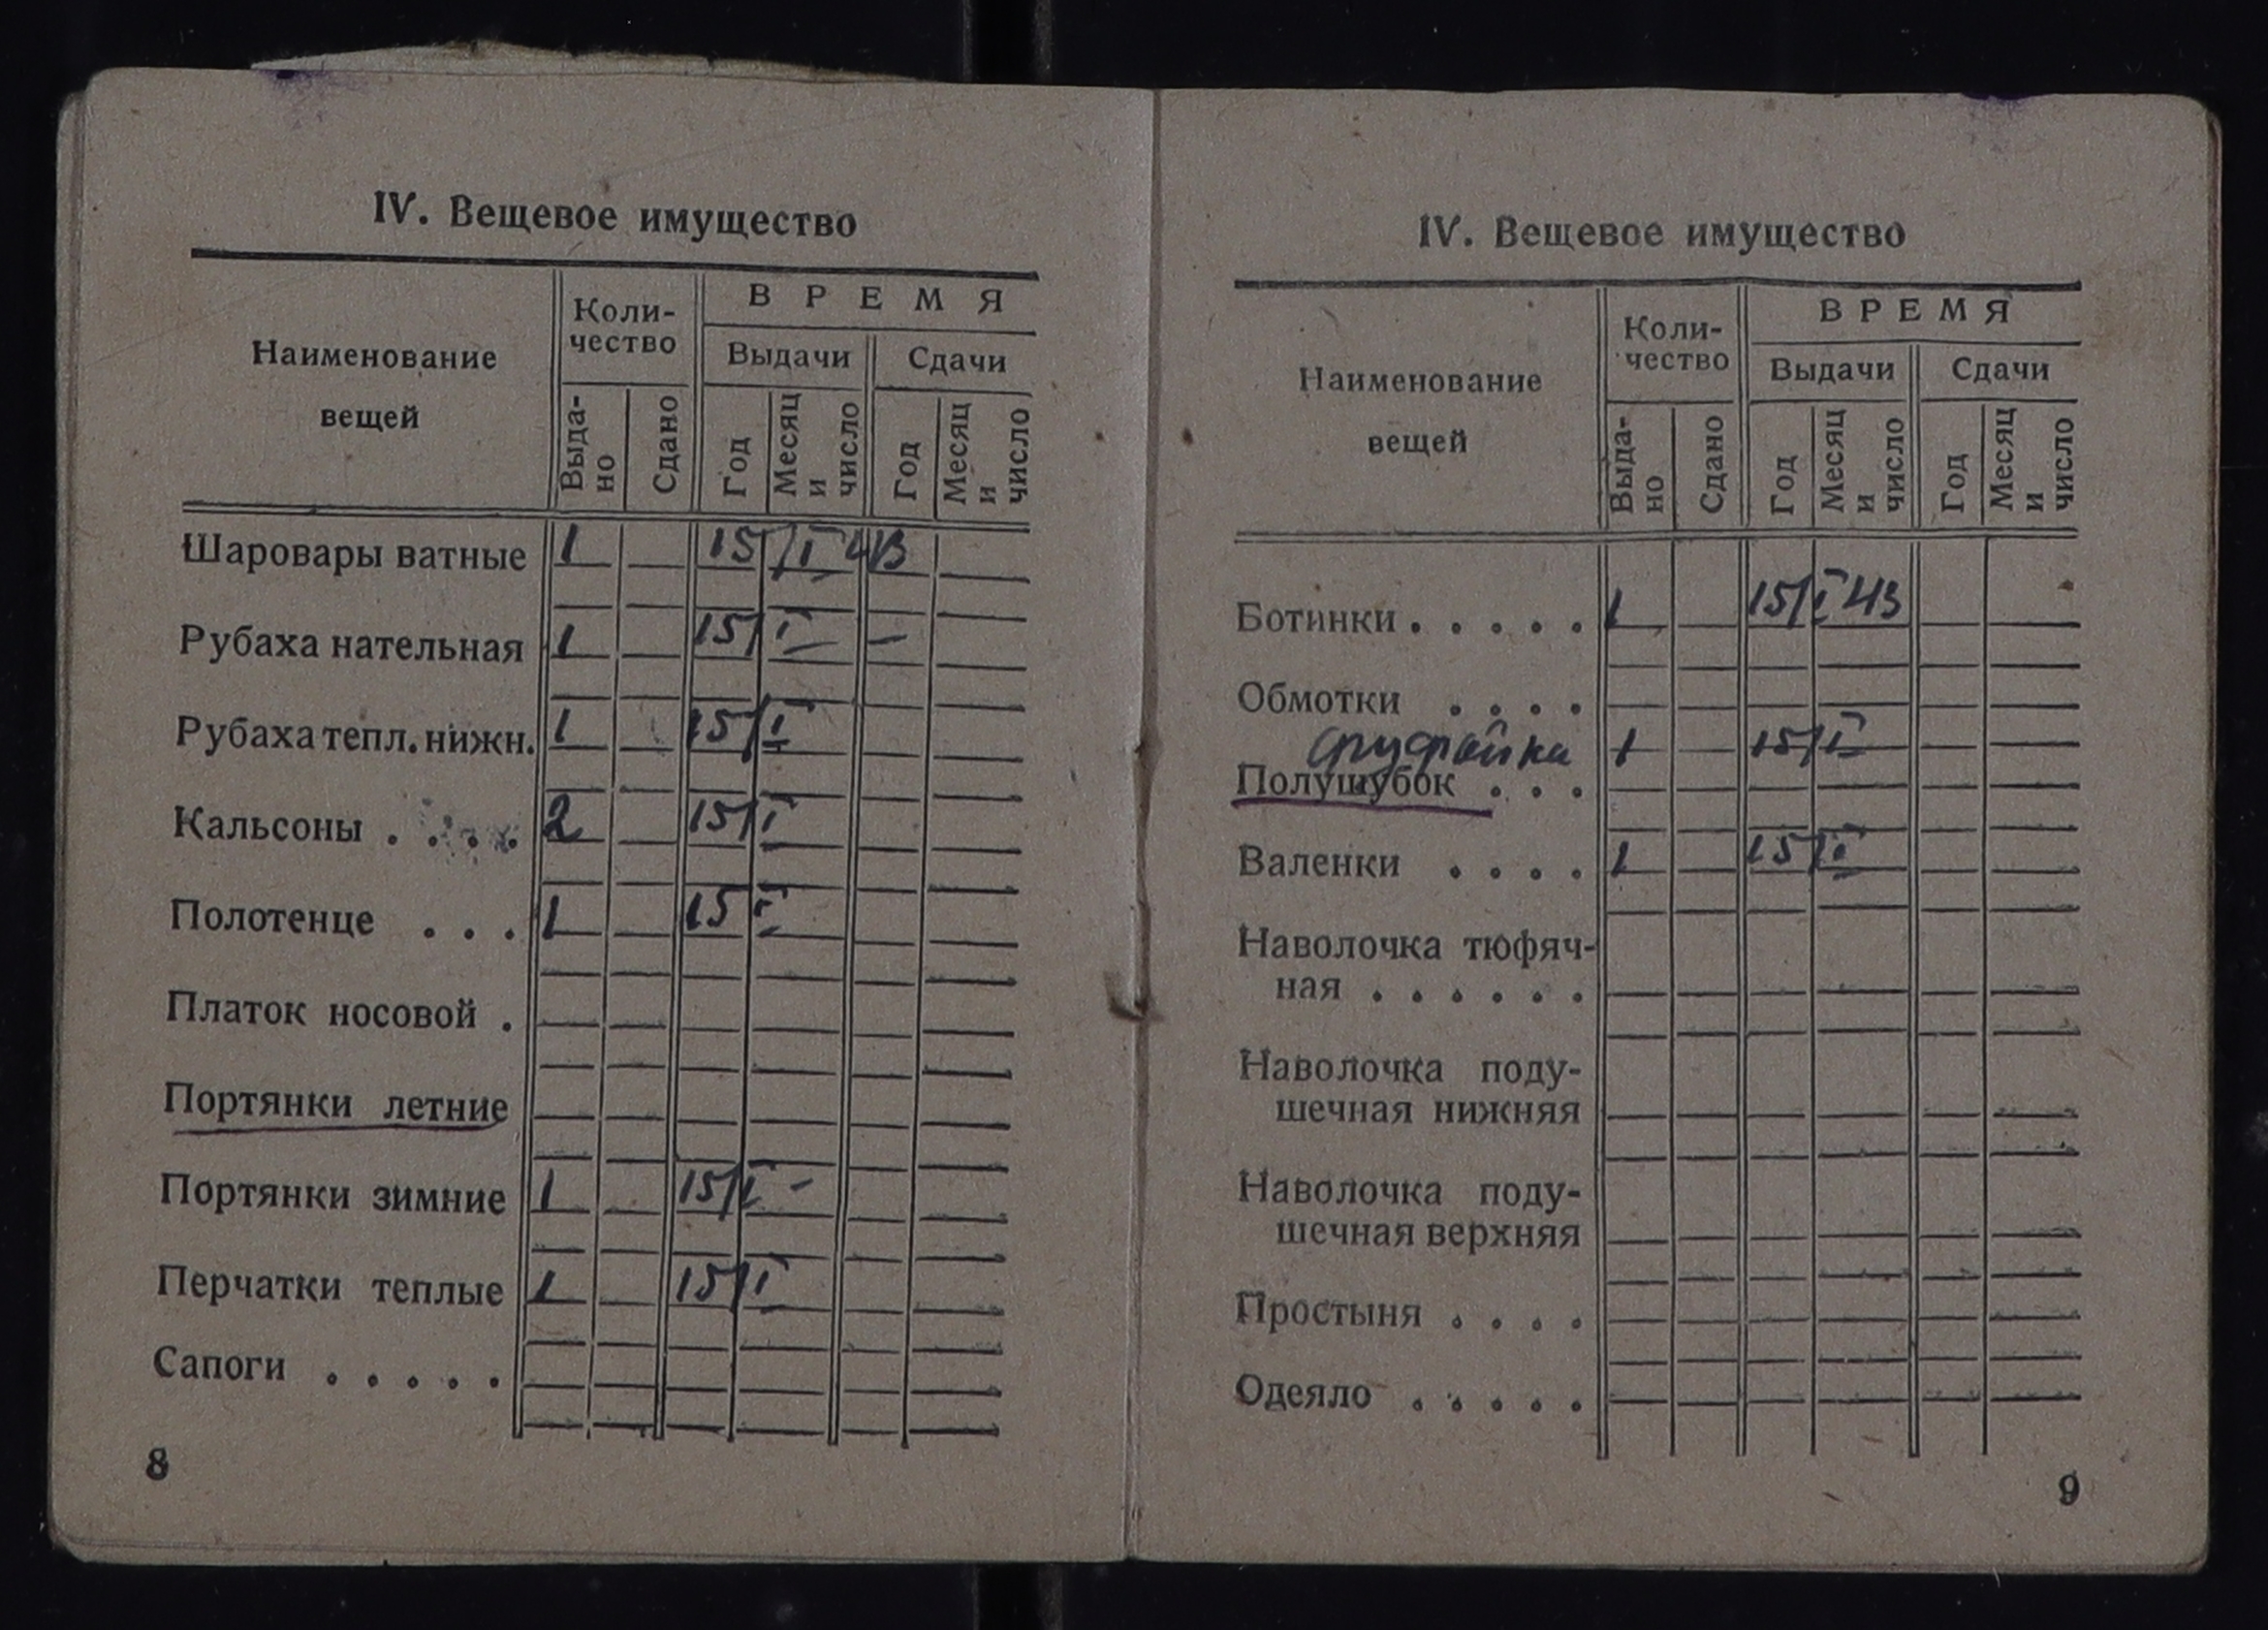 IV. Вещевое имущество
Наименование вещей
Коли-
чество
ВРЕМЯ
Выдачи
Сдачи
Выда-
но
Сдано
Год
Месяц
и
число
Год
Месяц
и
число
Шаровары ватные 1 15/I 43
Рубаха нательная 1 15/I — —
Рубаха тепл. нижн. 1 15/I
Кальсоны . . . . 2 15/I
Полотенце . . . 1 15 I
Платок носовой .
Портянки летние
Портянки зимние 1 15/I -
Перчатки теплые 1 15/I
Сапоги . . . . .
8
IV. Вещевое имущество
Наименование вещей
Коли-
чество
ВРЕМЯ
Выдачи
Сдачи
Выда-
но
Сдано
Год
Месяц
и
число
Год
Месяц
и
число
Ботинки . . . . . 1 15/I 43
Обмотки . . . .
фуфайка 1 15/I
Полушубок . . .
Валенки . . . . 1 15/I
Наволочка тюфяч-
ная . . . . . .
Наволочка поду-
шечная нижняя
Наволочка поду-
шечная верхняя
Простыня . . . .
Одеяло . . . . .
9